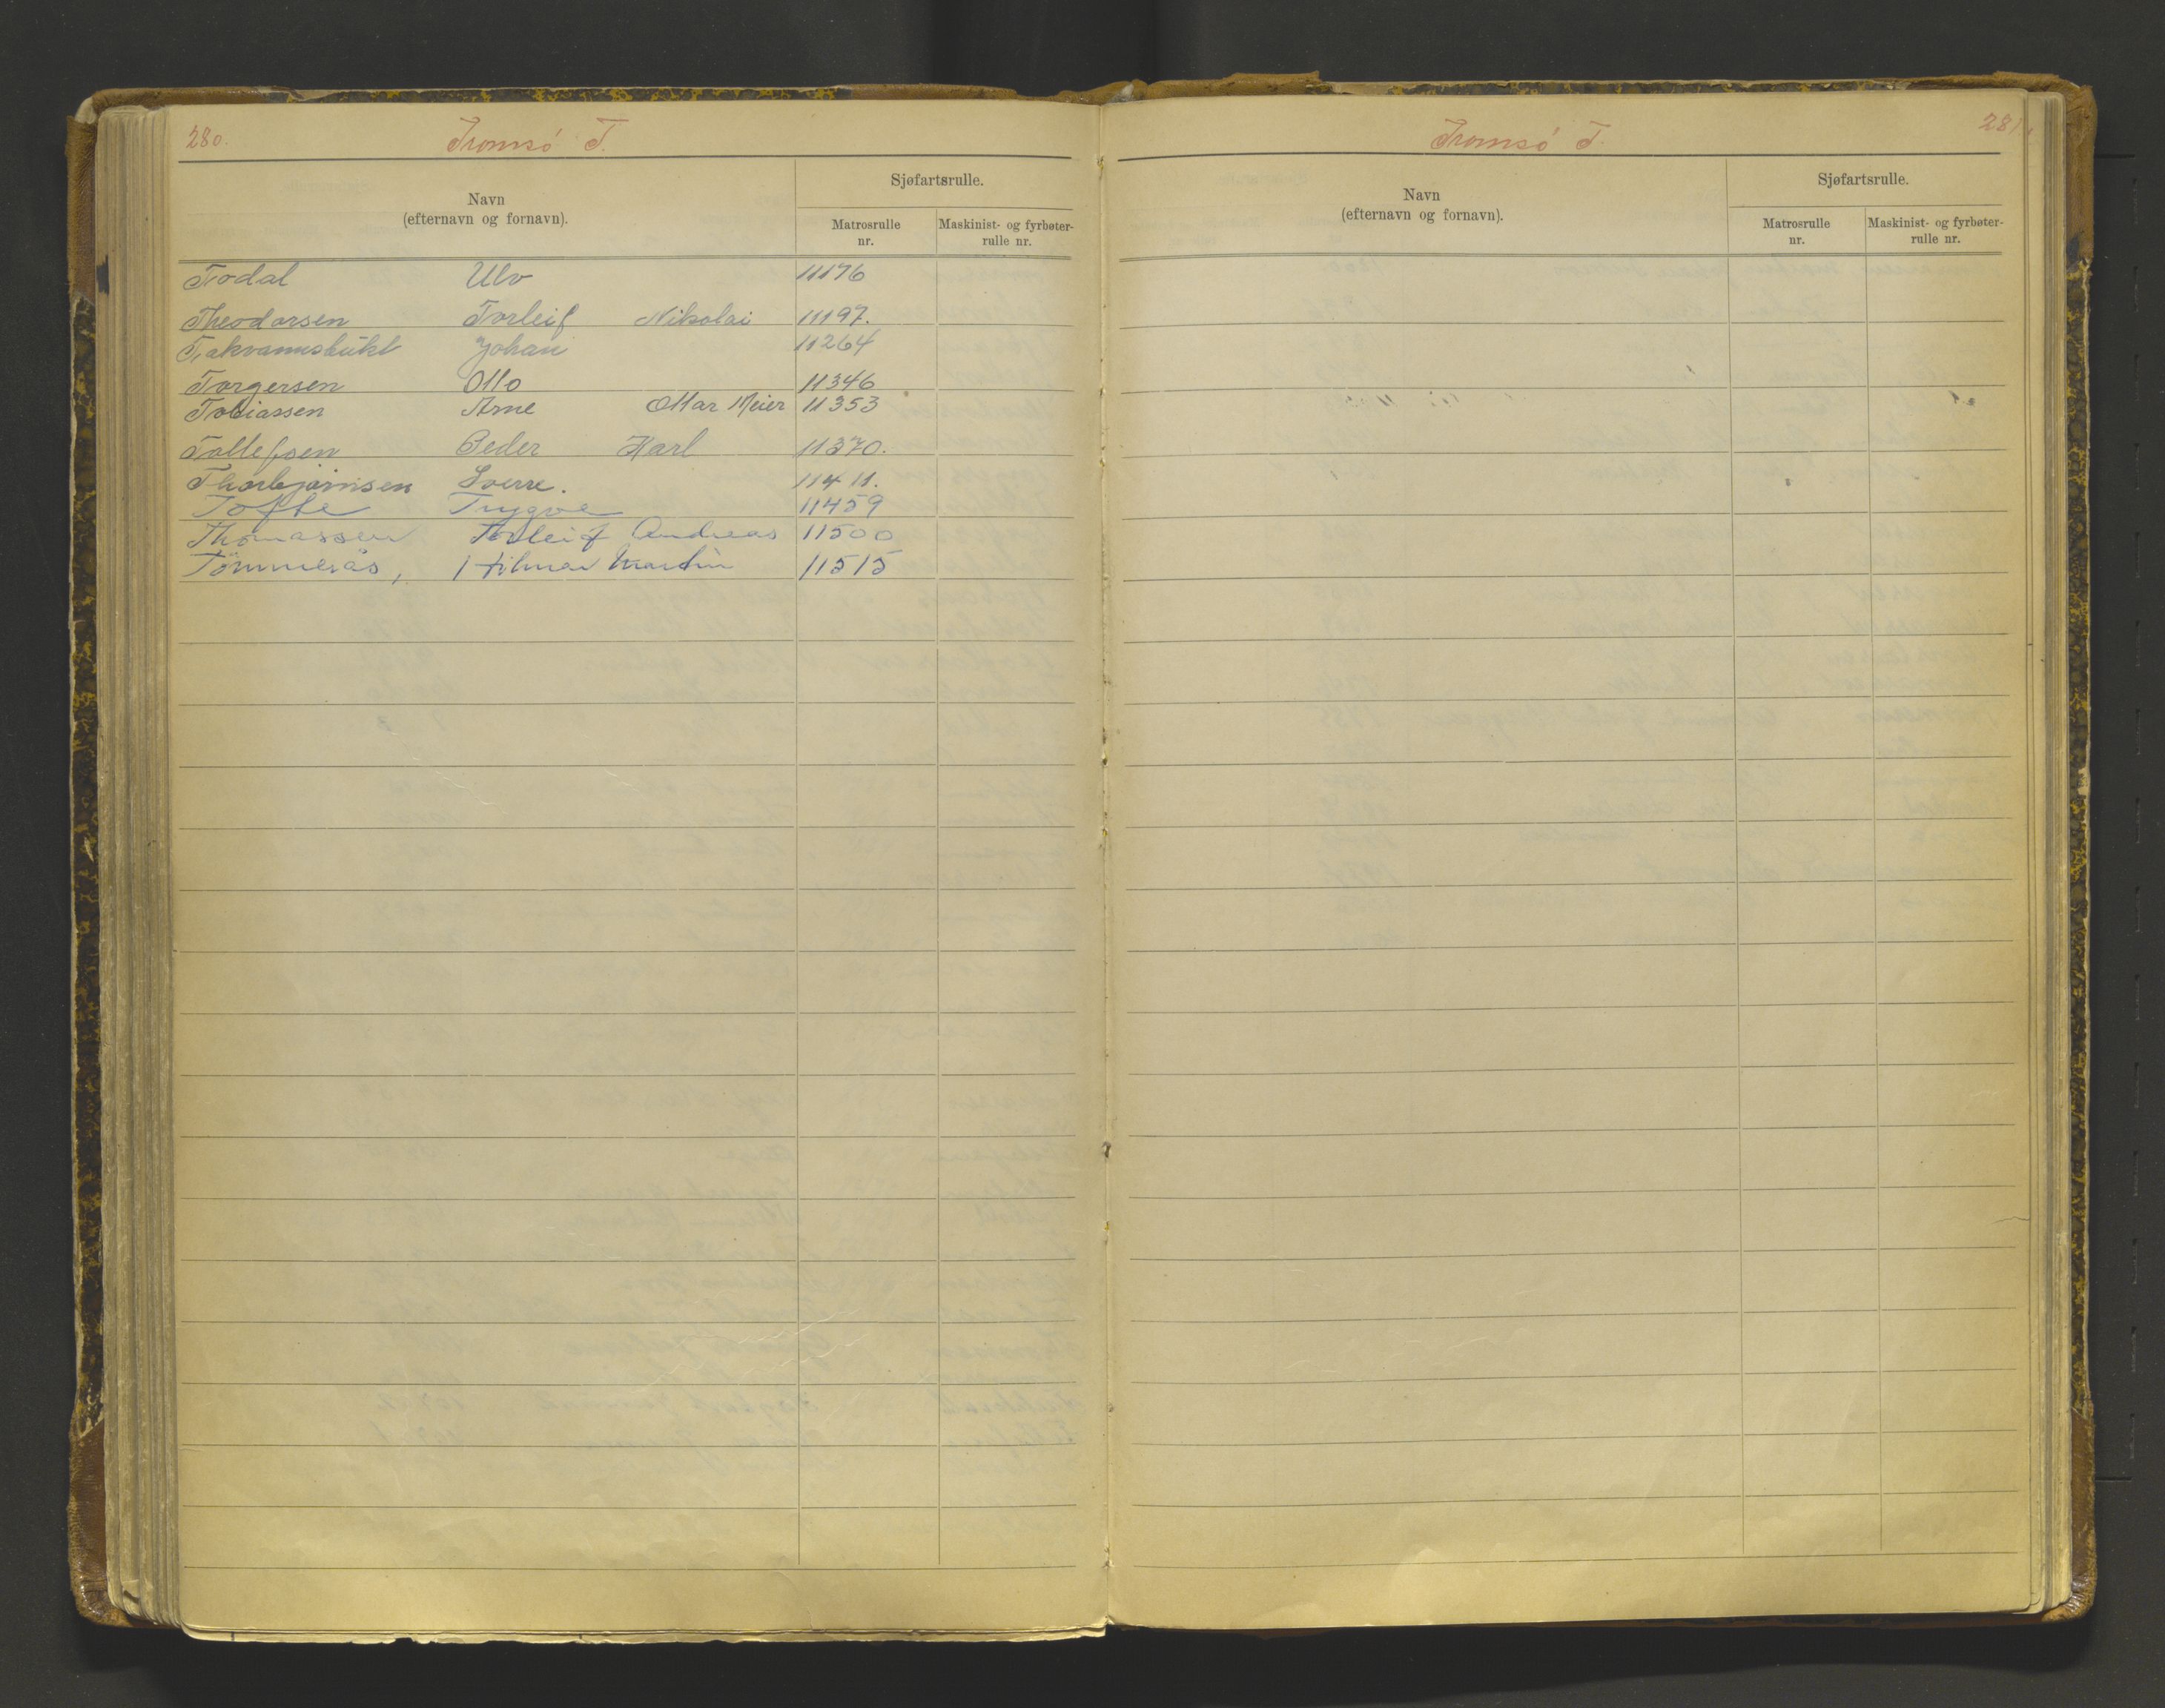 280.
Tromsö T.
Navn
(efternavn og fornavn).
Sjøfartsrulle.
Matrosrulle
nr.
Maskinist- og fyrbøter-
rulle nr.
Todal Ulv 11176
Theodorsen Torleif Nikolai 11197.
Takvannsbukt Johan 11264
Torgersen Otto 11346
Tobiassen Arne Ottar Meier 11353
Tollefsen Peder Karl 11370.
Thorbjørnsen Sverre. 11411.
Tofte Trygve 11459
Thomassen Torleif Andreas 11500
Tömmerås, Hilmar Martin 11515
281.
Tromsö T.
Navn
(efternavn og fornavn).
Sjøfartsrulle.
Matrosrulle
nr.
Maskinist- og fyrbøter-
rulle nr.